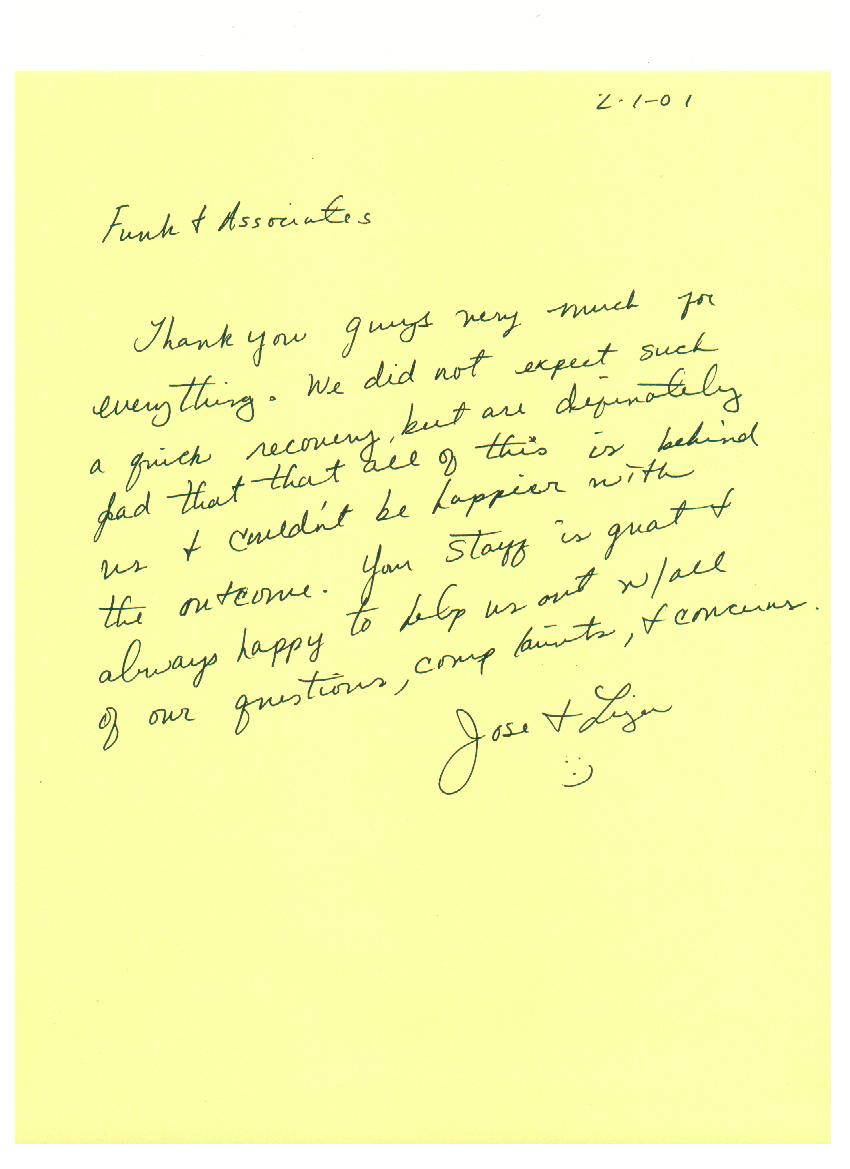 2-1-01
Funk & Associates
Thank you guys very much for
everything. We did not expect such
a quick recovery, but are definately
glad that that all of this is behind
us & couldn't be happier with
the outcome. Your staff is great &
always happy to help us out w/all
of our questions, complaints, & concerns.
Jose & Liza
:)